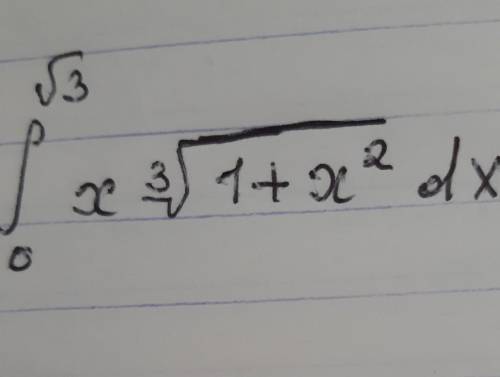 ∫₀^√3 x ∛(1+x²) dx